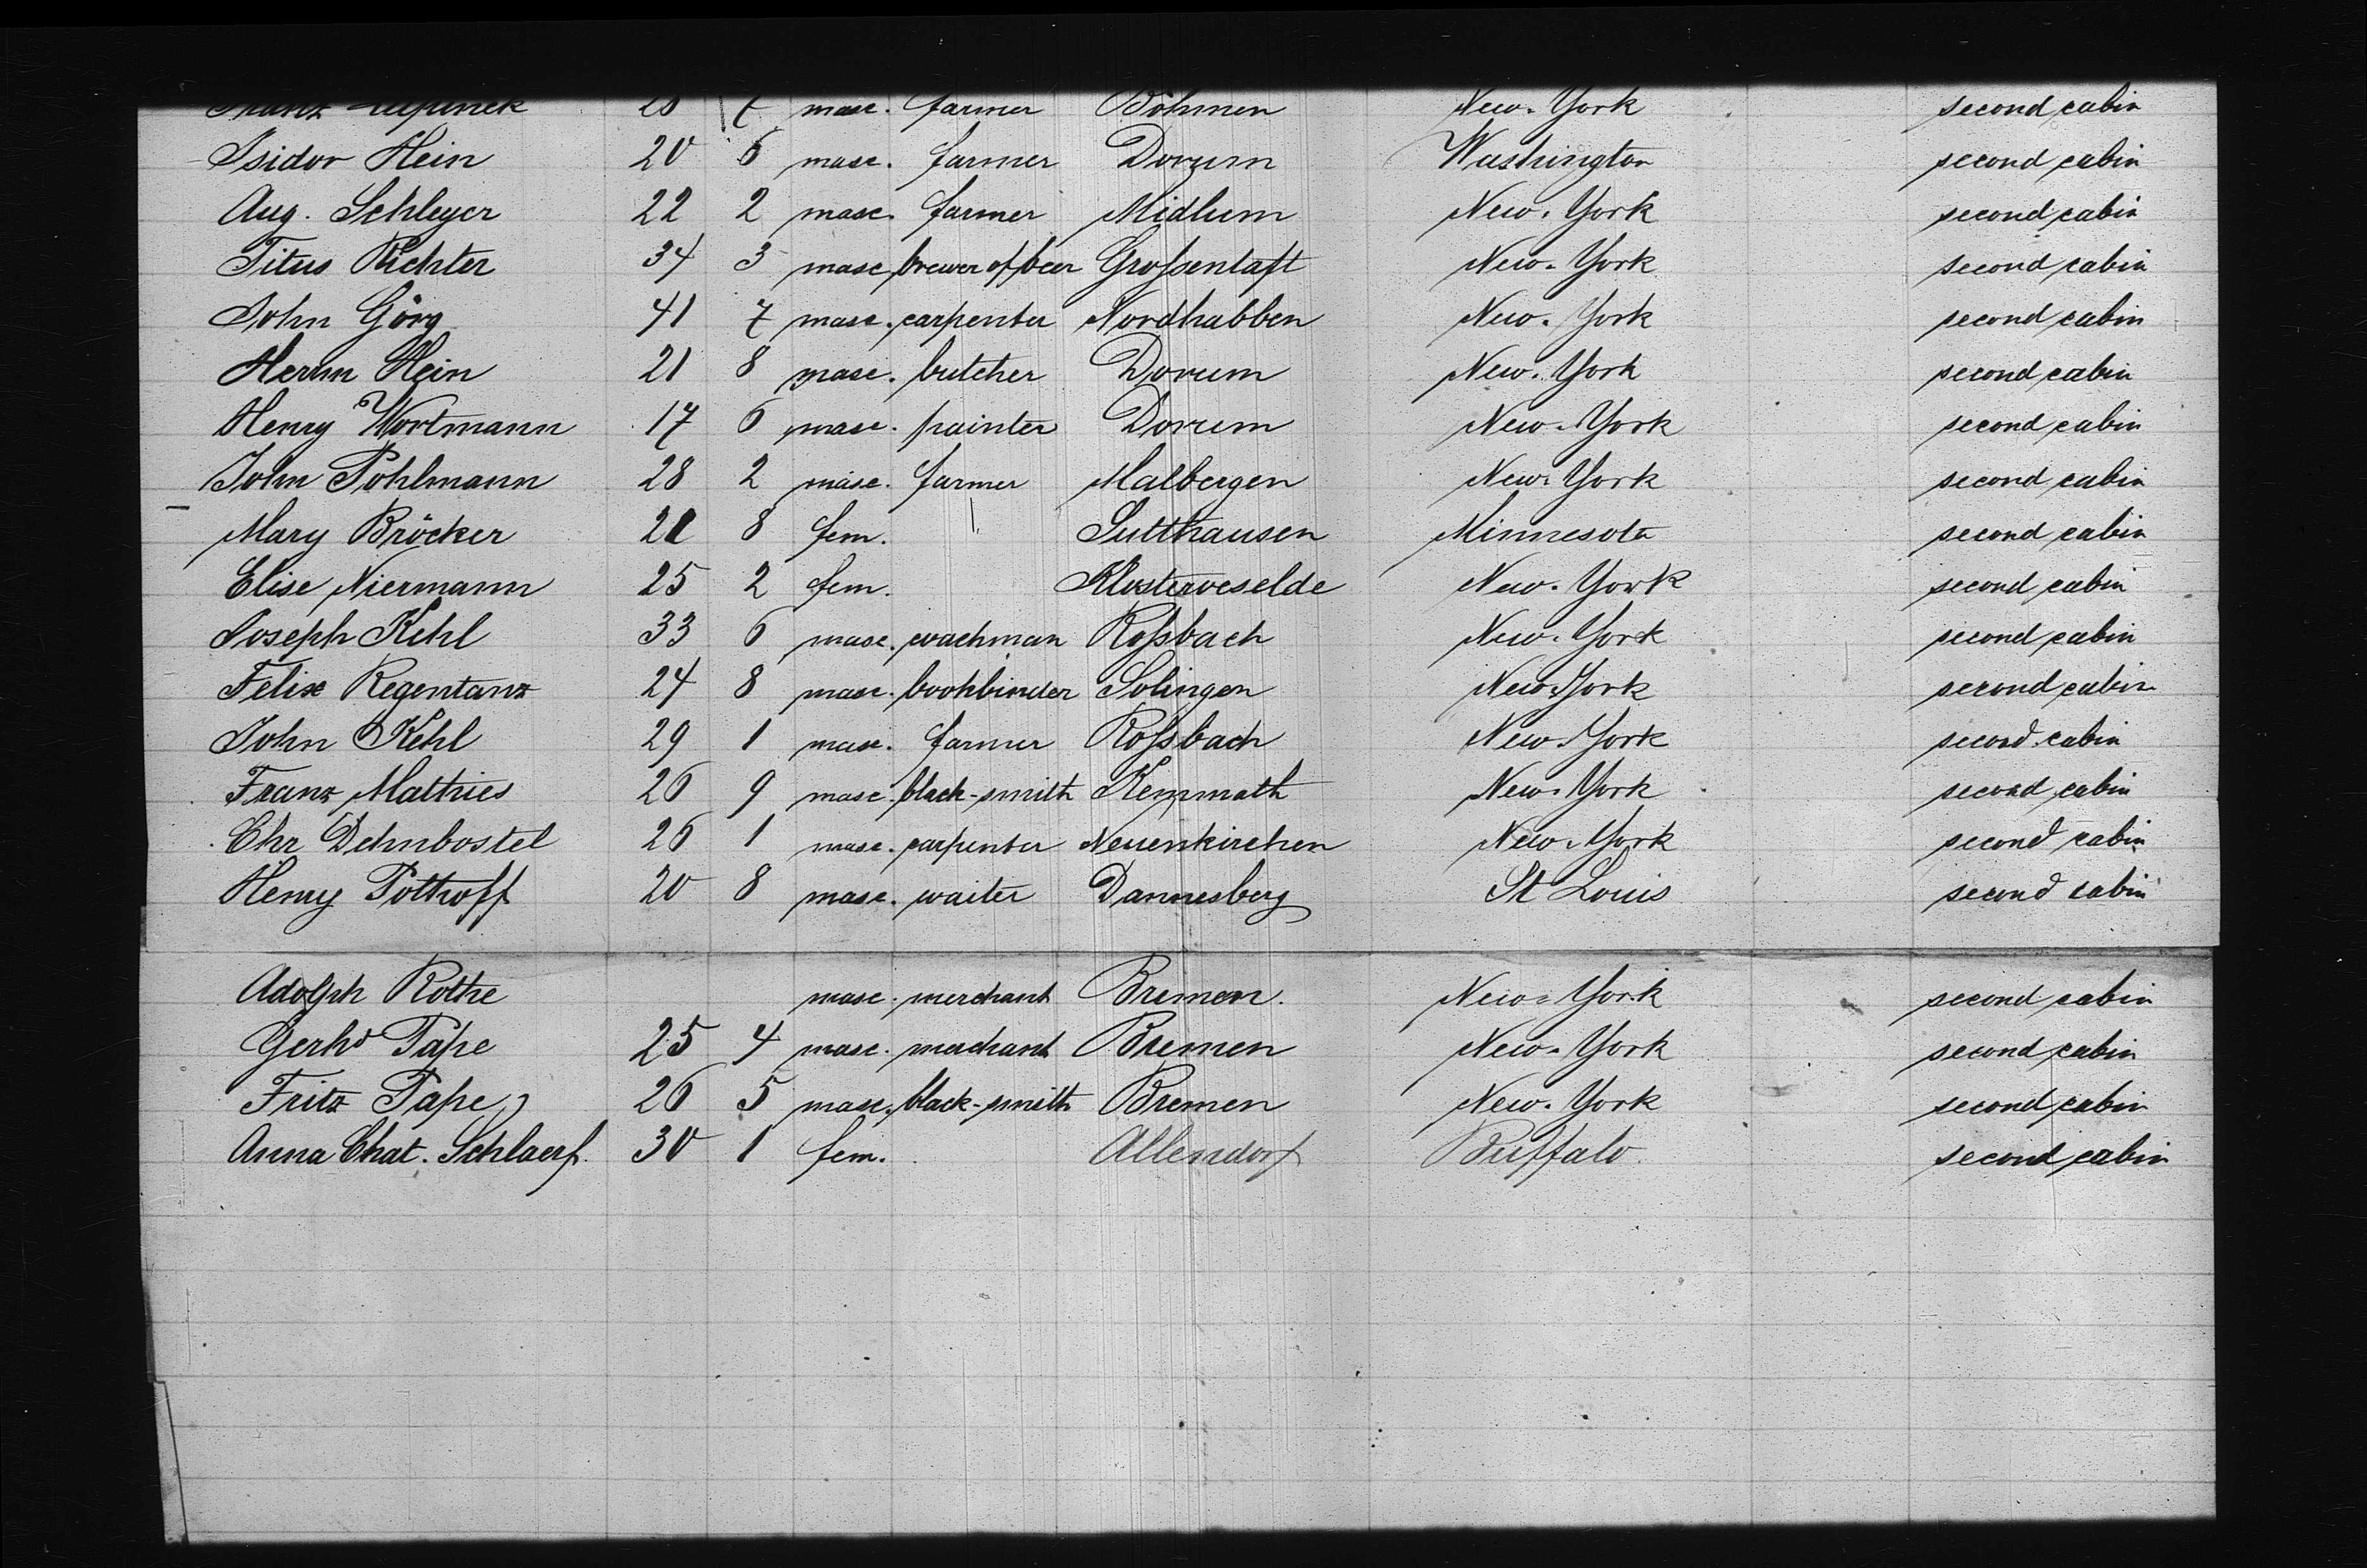 Franz 28 7 masc. farmer Böhmen New-York second cabin
Isidor Hein 20 6 masc. farmer Dorum Washington second cabin
Aug. Schleyer 22 2 masc. farmer Midlum New-York second cabin
Titus Richter 34 3 masc. brewer of beer Großentaft New-York second cabin
John Görg 41 7 masc. carpenter Nordhabben New-York second cabin
Herm Hein 21 8 masc. butcher Dorum New-York second cabin
Henry Wortmann 17 6 masc. painter Dorum New-York second cabin
John Pohlmann 28 2 masc. farmer Malbergen New-York second cabin
Mary Bröcker 8 fem. Sutthausen Minnesota second cabin
Elise Niermann 25 2 fem. Klosteroeselde New-York second cabin
Joseph Kehl 33 6 masc. coachman Roßbach New-York second cabin
Felix Regentanz 24 8 masc. bookbinder Solingen New-York second cabin
John Kehl 29 1 masc. farmer Roßbach New-York second cabin
Franz Matthies 26 9 masc. black-smith Kemmath New-York second cabin
Chr Dehnbostel 26 1 masc. carpenter Neuenkirchen New-York second cabin
Henry Potthoff 20 8 masc. waiter Dannesberg St Louis second cabin
Adolph Rothe masc. merchant Bremen. New-York second cabin
Gerhd Pape 25 4 masc. merchant Bremen New-York second cabin
Fritz Pape 26 5 masc. black-smith Bremen New-York second cabin
Anna Chat. Schlaerf. 30 1 fem. Allendorf Buffalo. second cabin